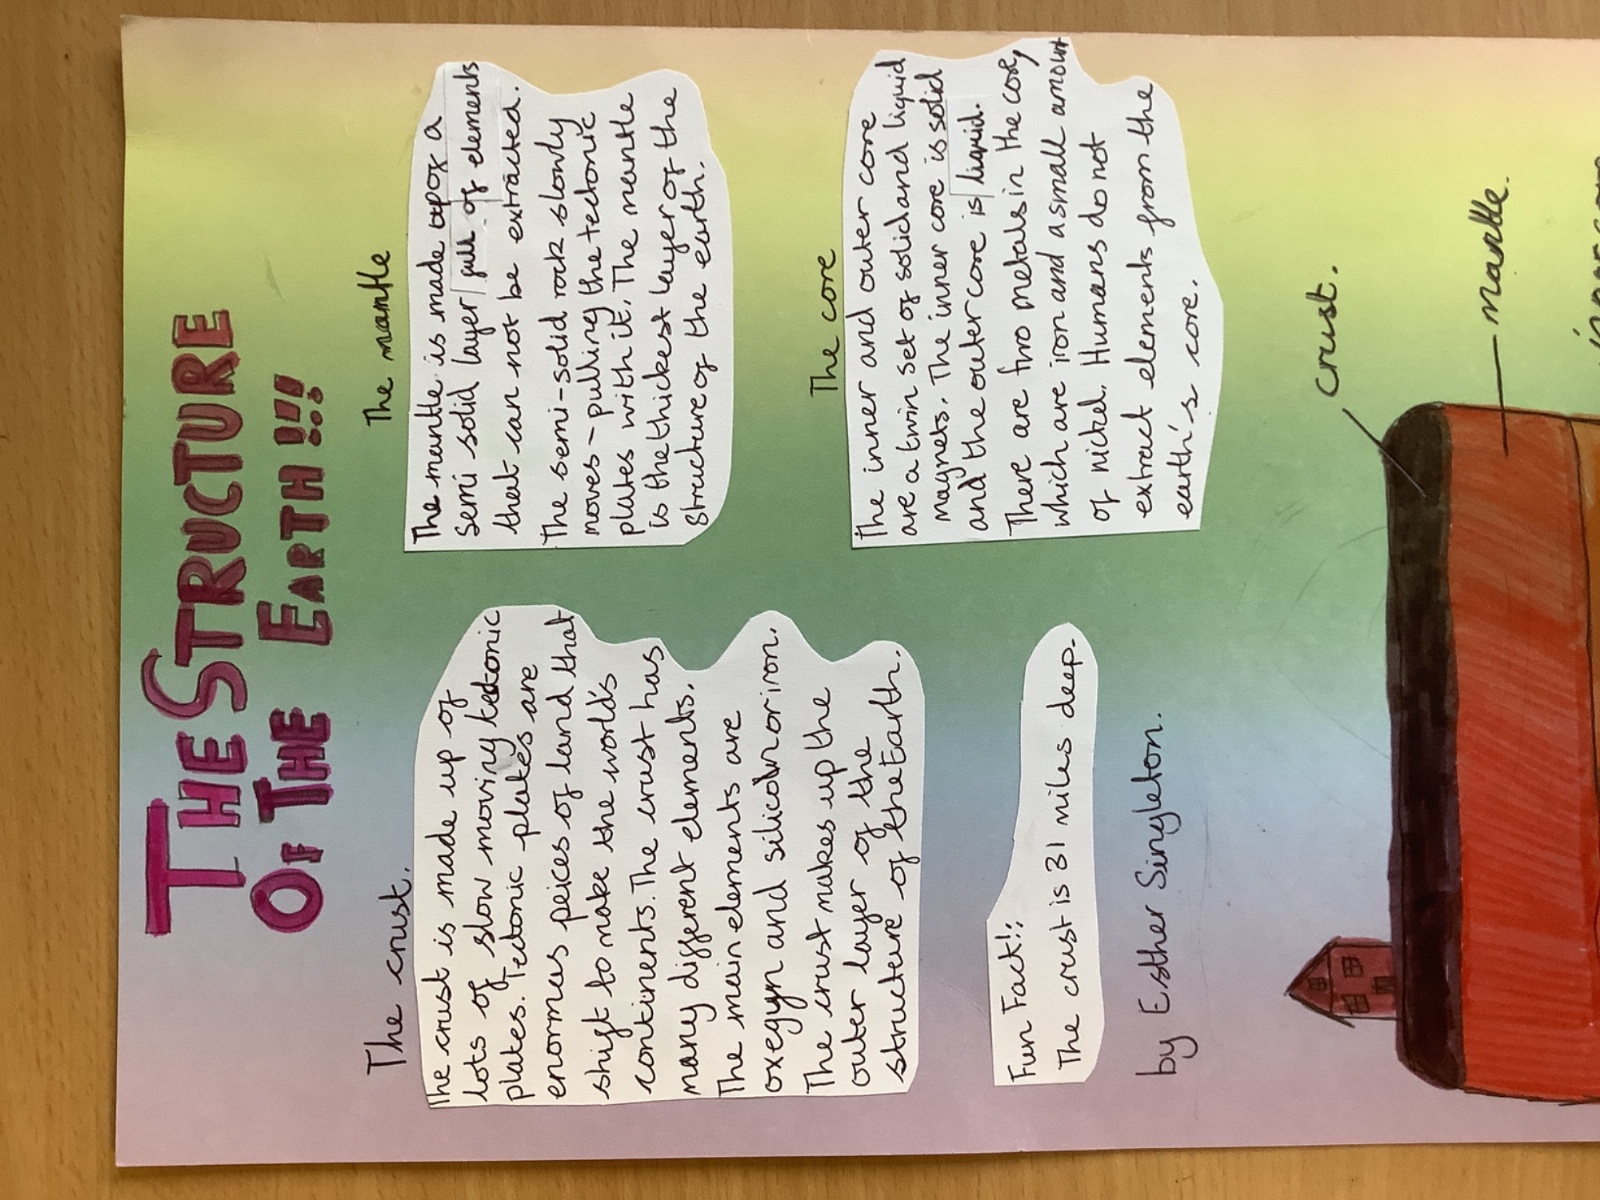 THE STRUCTURE
OF THE EARTH!!!
The crust.
The crust is made up of
lots of slow moving tectonic
plates. Tectonic plates are
enormus peices of land that
shift to make the world's
continents. The crust has
many different elements.
The main elements are
oxegyn and silicon or iron.
The crust makes up the
outer layer of the
structure of the Earth.
Fun Fact!!
The crust is 31 miles deep.
by Esther Singleton.
The mantle
The mantle is made up of a
semi solid layer full of elements
that can not be extracted.
The semi-solid rock slowly
moves - pulling the tectonic
plates with it. The mantle
is the thickest layer of the
structure of the earth.
The core
The inner and outer core
are a twin set of solid and liquid
magnets. The inner core is solid
and the outer core is liquid.
There are two metals in the core,
which are iron and a small amount
of nickel. Humans do not
extract elements from the
earth's core.
crust.
mantle.